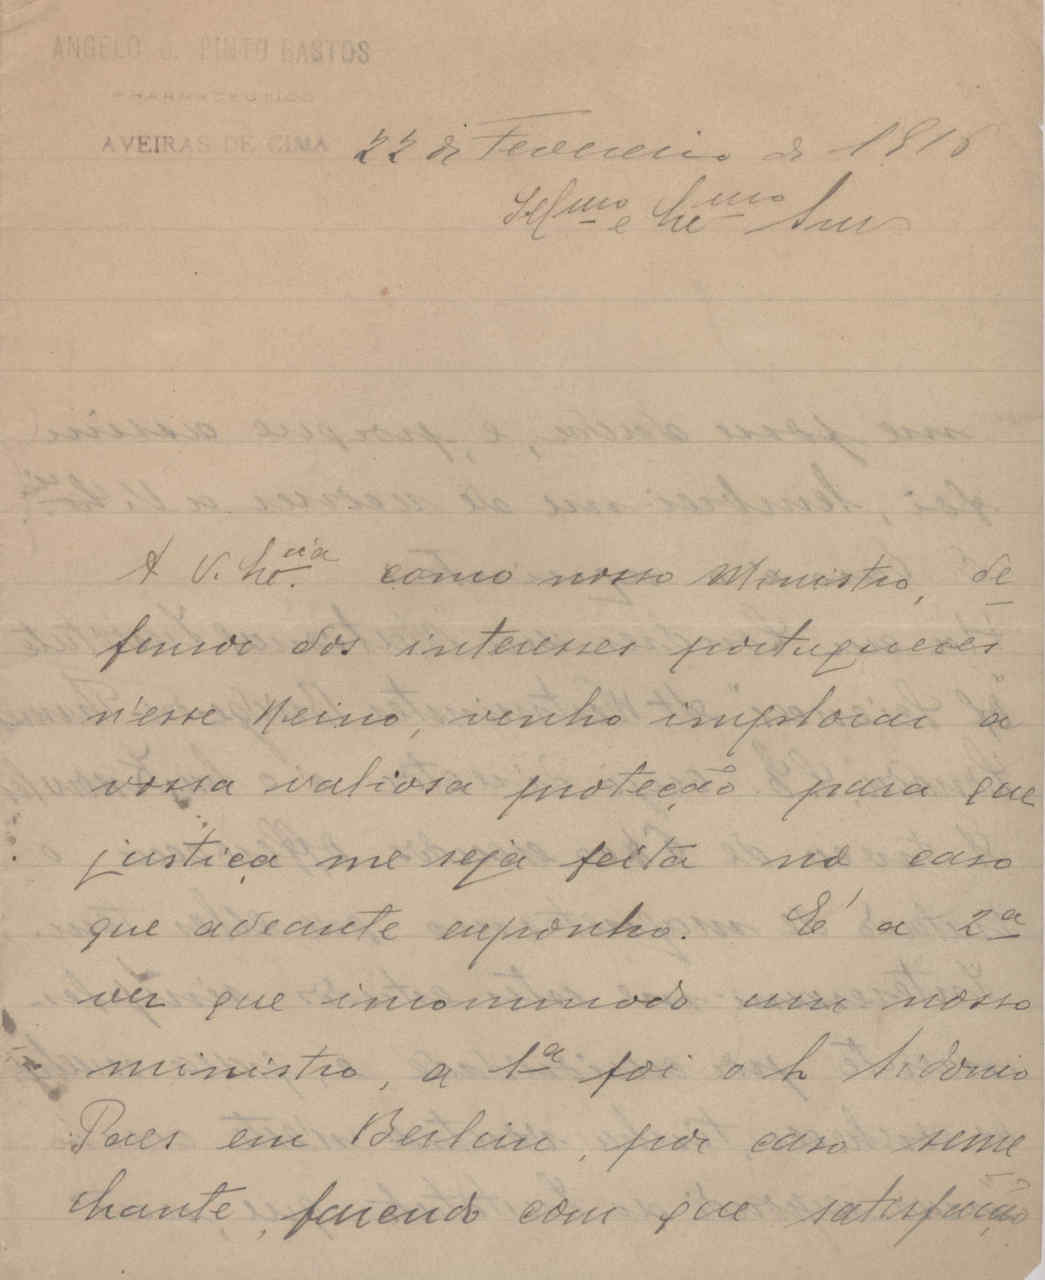 ANGELO J. PINTO BASTOS
PHARMACEUTICO
AVEIRAS DE CIMA
22 de Fevereiro de 1916
Illmo e Exmo Snr
A V. Excia como nosso Ministro, de
fensor dos interesses portuguezes
n'esse Reino, venho implorar a
vossa valiosa proteção para que
justiça me seja feita no caso
que adeante exponho. É a 2ª
vez que incommodo um nosso
ministro, a 1ª foi o Sr Sidonio
Paes em Berlim, por caso seme
lhante, fazendo com que satisfação